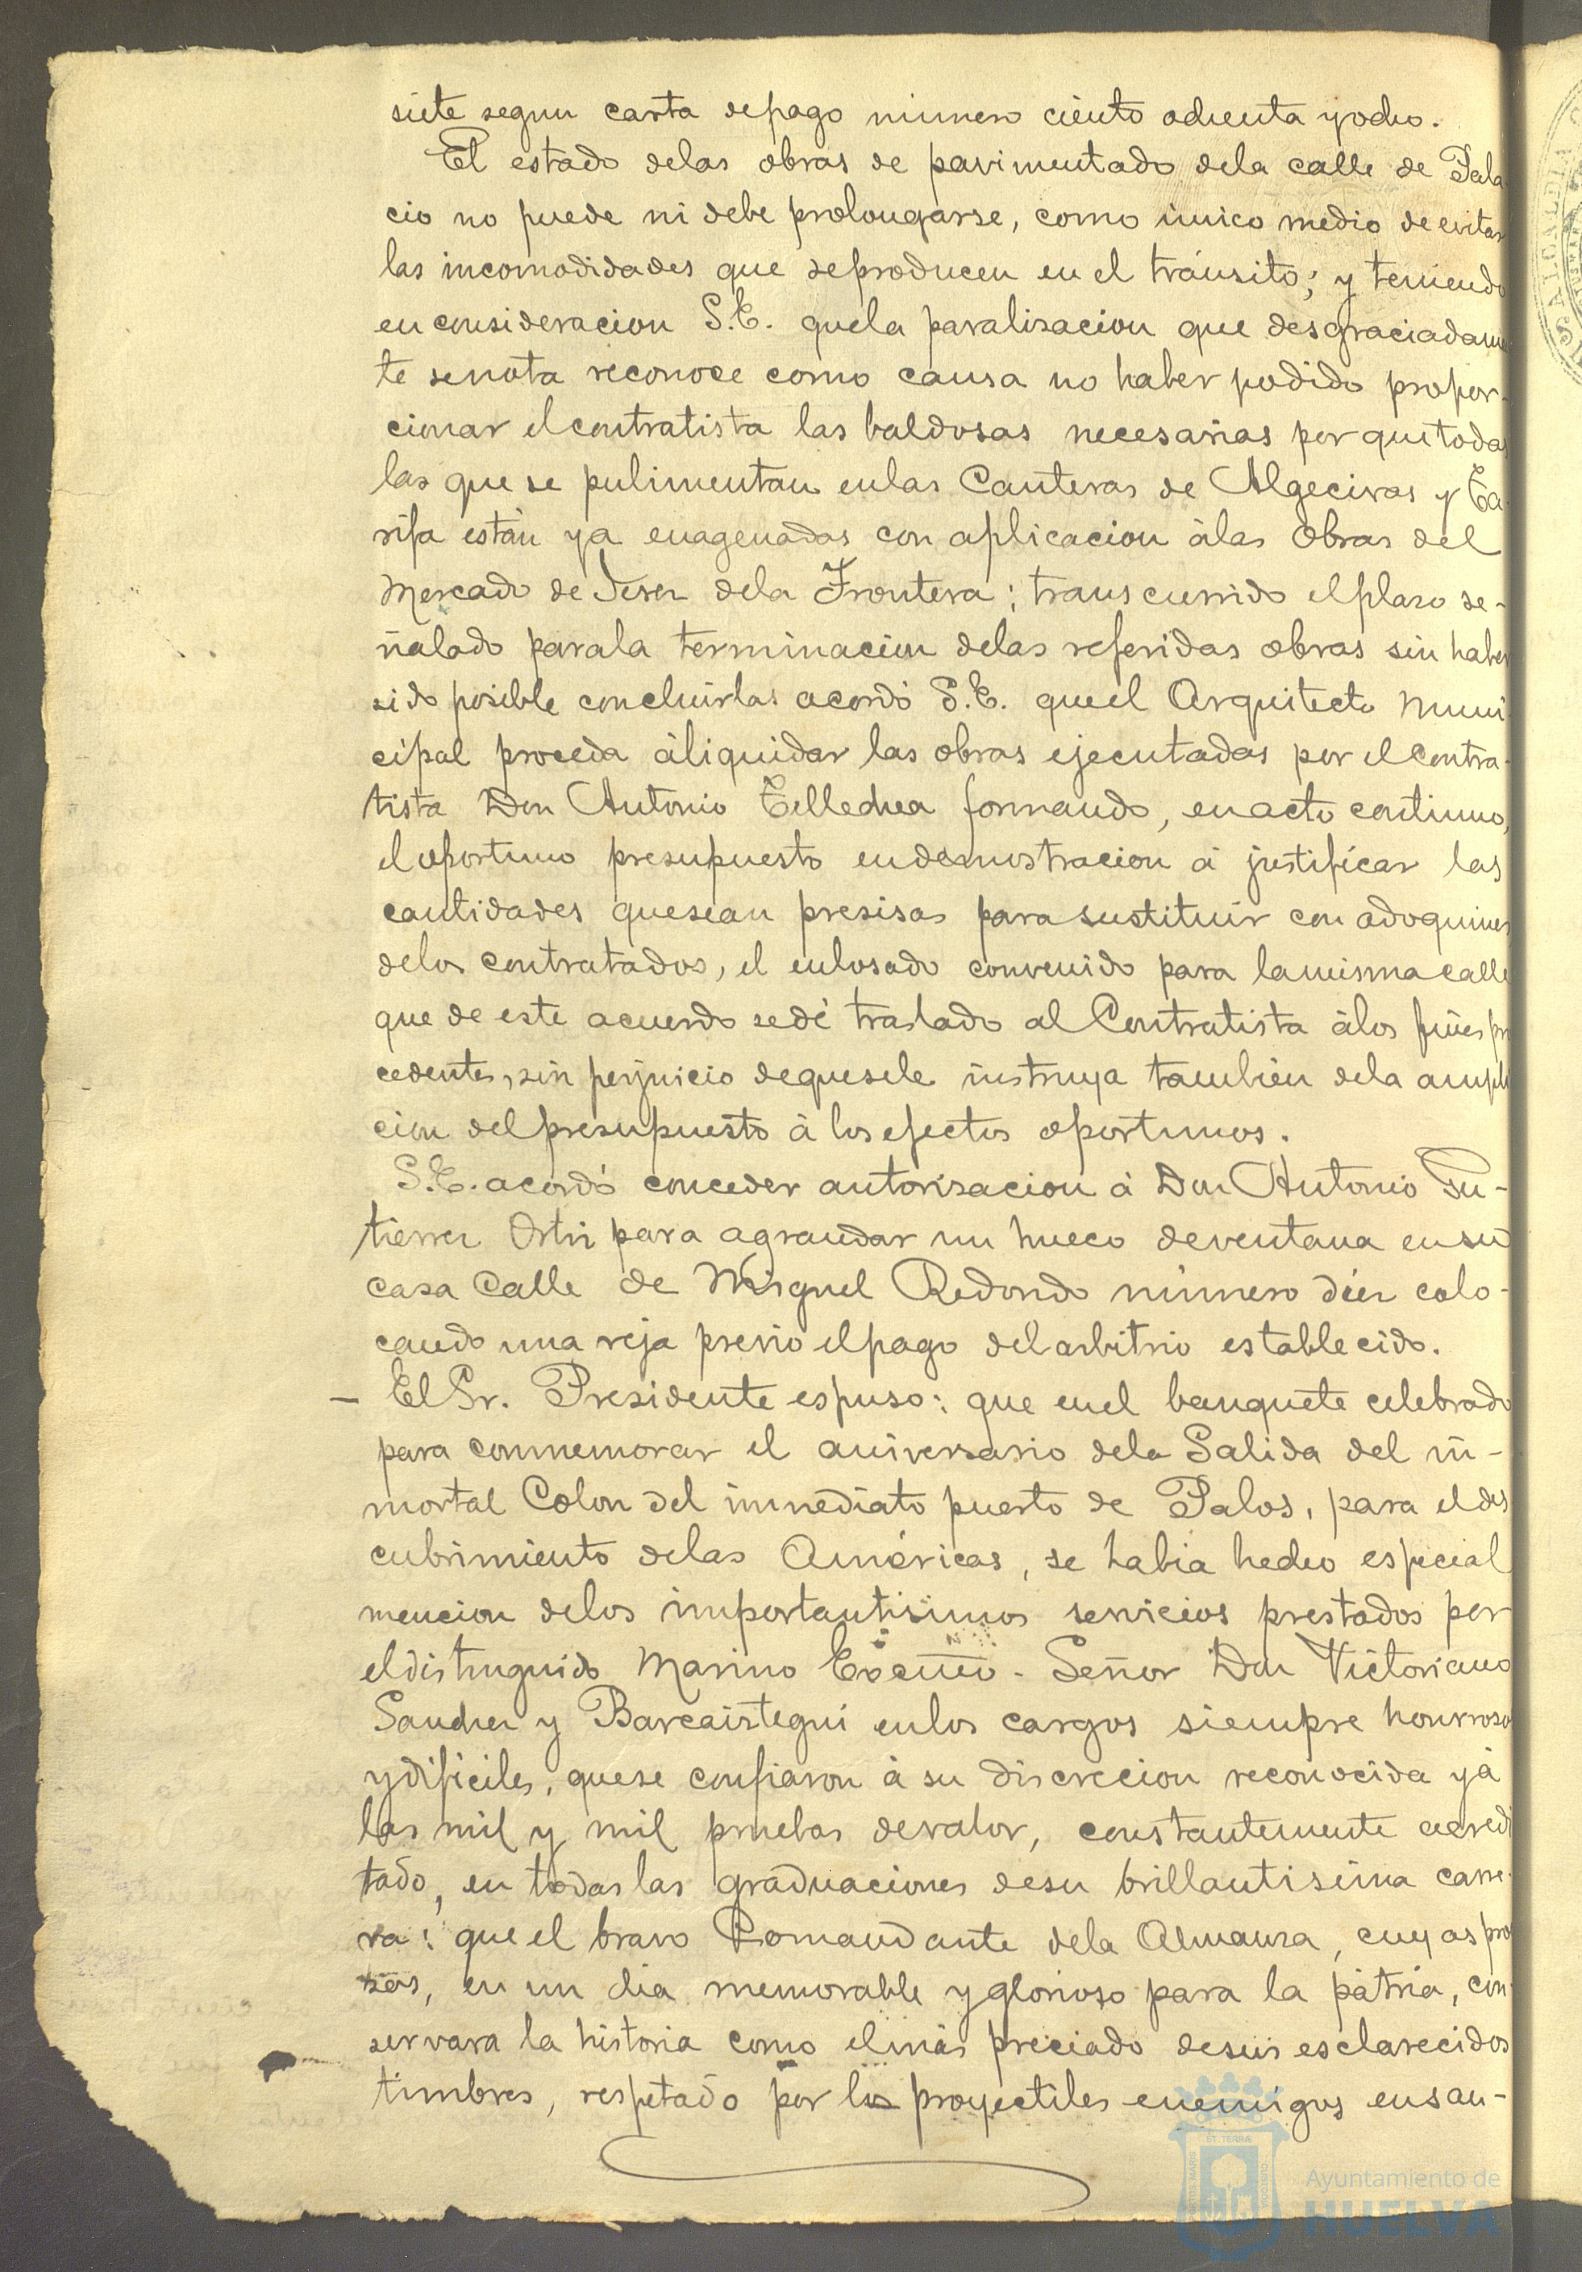 siete segun carta de pago número ciento ochenta y ocho.
El estado de las obras de pavimentado de la calle de Pala
cio no puede ni debe prolongarse, como único medio de evitar
las incomodidades que se producen en el tránsito; y teniendo
en consideracion S.E. que la paralisacion que desgraciadamen
te se nota reconoce como causa no haber podido propor-
cionar el contratista las baldosas necesarias por que todas
las que se pulimentan en las Canteras de Algeciras y Ta-
rifa están ya enagenadas con aplicacion á las obras del
Mercado de Jerez de la Frontera; transcurrido el plazo se-
ñalado para la terminacion de las referidas obras sin haber
sido posible concluirlas acordó S.E. que el Arquitecto Muni
cipal proceda á liquidar las obras ejecutadas por el contra-
tista Don Antonio Tellechea formando, en acto continuo,
el oportuno presupuesto en demostracion á justificar las
cantidades que sean presisas para sustituir con adoquines
de los contratados, el enlosado convenido para la misma calle
que de este acuerdo se dé traslado al Contratista á los fines pro
cedentes, sin perjuicio de que se le instruya también de la ampli
cion del presupuesto á los efectos oportunos.
S.E. acordó conceder autorizacion á Don Antonio Gu-
tierrez Ortiz para agrandar un hueco de ventana en su
casa Calle de Miguel Redondo número diez colo-
cando una reja previo el pago del arbitrio establecido.
– El Sr. Presidente espuso: que en el banquete celebrado
para conmemorar el aniversario de la Salida del in-
mortal Colon del inmediato puerto de Palos, para el des
cubrimiento de las Américas, se habia hecho especial
mencion de los importantisimos servicios prestados por
el distinguido Marino Excmo. Señor Don Victoriano
Sanchez y Barcaiztegui en los cargos siempre honrrosos
y dificiles, que se confiaron á su discrecion reconocida y á
las mil y mil pruebas de valor, constantemente acredi
tado, en todas las graduaciones de su brillantisima carre-
ra: que el bravo Comandante de la Almanza, cuyas proe
zas, en un dia memorable y glorioso para la pátria, con-
servara la historia como el más preciado de sus esclarecidos
timbres, respetado por los proyectiles enemigos en san-
Ayuntamiento de
HUELVA